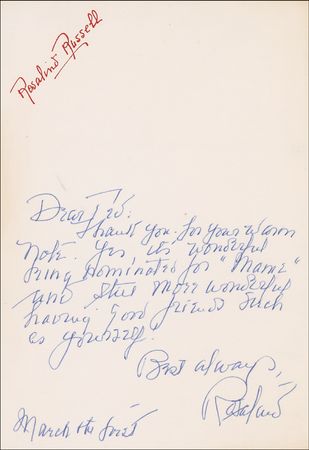 Rosalind Russell
Dear Ted:
Thank you for your warm
note. Yes its wonderful
being nominated for "Mame"
and still more wonderful
having good friends such
as yourself.
Best always,
Rosalind
March the first